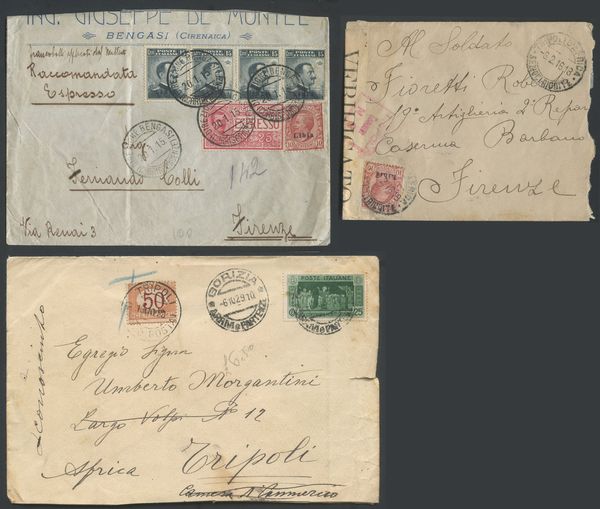 ING. GIUSEPPE DE MONTEL
BENGASI (CIRENAICA)
Raccomandata
Espresso
POSTE ITALIANE 15
ESPRESSO
LIBIA
BENGASI
20.1.15
Sig
Fernando Colli
142
Via Renai 3
Firenze
108
VERIFICATO
Al Soldato
Fioretti
19° Artiglieria
Caserma Barbano
Firenze
LIBIA
TRIPOLI
50
GORIZIA
-6.10.29.10
ARRIVI E PARTENZE
POSTE ITALIANE
25
sconosciuto
Egregio Signor
Umberto Morgantini
Largo Volpi N° 12
Tripoli
Africa
Camera di Commercio